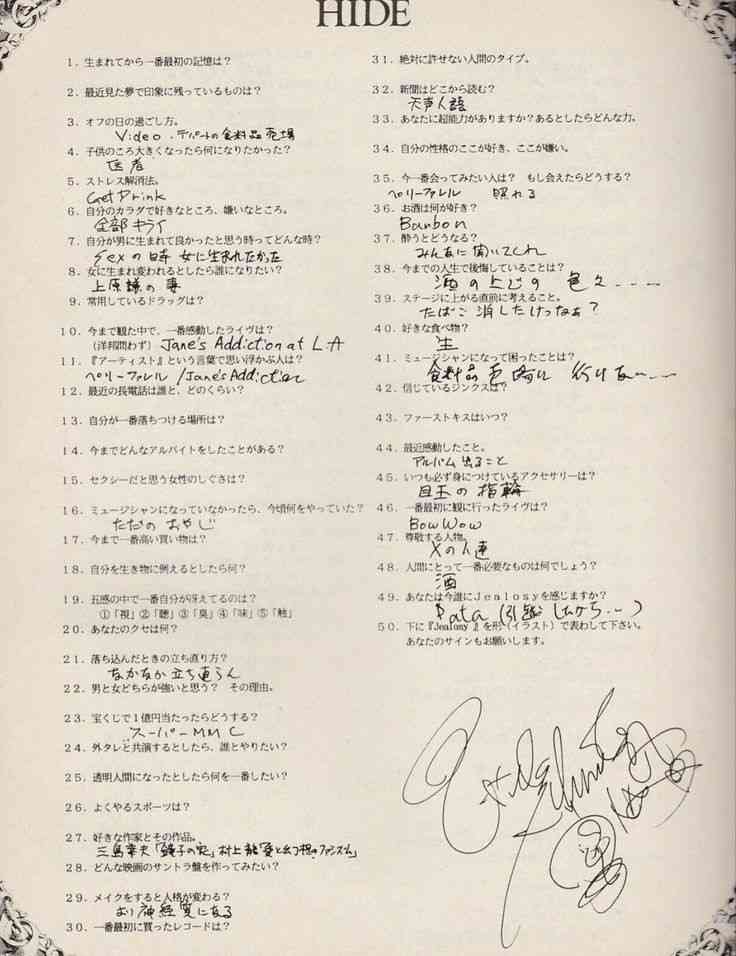 HIDE
1. 生まれてから一番最初の記憶は？
2. 最近見た夢で印象に残っているものは？
3. オフの日の過ごし方。
Video・デパートの食料品売場
4. 子供のころ大きくなったら何になりたかった？
医者
5. ストレス解消法。
Get Drink
6. 自分のカラダで好きなところ、嫌いなところ。
全部キライ
7. 自分が男に生まれて良かったと思う時ってどんな時？
Sexの時 女に生まれたかった
8. 女に生まれ変われるとしたら誰になりたい？
上原謙の妻
9. 常用しているドラッグは？
10. 今まで観た中で、一番感動したライヴは？
（洋邦問わず） Jane's Addiction at L.A
11. 『アーティスト』という言葉で思い浮かぶ人は？
ペリーファレル / Jane's Addiction
12. 最近の長電話は誰と、どのくらい？
13. 自分が一番落ちつける場所は？
14. 今までどんなアルバイトをしたことがある？
15. セクシーだと思う女性のしぐさは？
16. ミュージシャンになっていなかったら、今頃何をやっていた？
ただの おやじ
17. 今まで一番高い買い物は？
18. 自分を生き物に例えるとしたら何？
19. 五感の中で一番自分が冴えてるのは？
①「視」②「聴」③「臭」④「味」⑤「触」
20. あなたのクセは何？
21. 落ち込んだときの立ち直り方？
なかなか立ち直らん
22. 男と女どちらが強いと思う？ その理由。
23. 宝くじで1億円当たったらどうする？
スーパーMMC
24. 外タレと共演するとしたら、誰とやりたい？
25. 透明人間になったとしたら何を一番したい？
26. よくやるスポーツは？
27. 好きな作家とその作品。
三島幸夫「鏡子の家」村上龍「愛と幻想のファシズム」
28. どんな映画のサントラ盤を作ってみたい？
29. メイクをすると人格が変わる？
より神経質になる
30. 一番最初に買ったレコードは？
31. 絶対に許せない人間のタイプ。
32. 新聞はどこから読む？
天声人語
33. あなたに超能力がありますか？あるとしたらどんな力。
34. 自分の性格のここが好き、ここが嫌い。
35. 今一番会ってみたい人は？ もし会えたらどうする？
ペリーファレル 照れる
36. お酒は何が好き？
Banbon
37. 酔うとどうなる？
みんなに聞いてくれ
38. 今までの人生で後悔していることは？
酒の上での 色々.....
39. ステージに上がる直前に考えること。
たばこ 消したけっなぁ？
40. 好きな食べ物？
生
41. ミュージシャンになって困ったことは？
食料品売場に 行けない....
42. 信じているジンクスは？
43. ファーストキスはいつ？
44. 最近感動したこと。
アルバム出ること
45. いつも必ず身につけているアクセサリーは？
目玉の指輪
46. 一番最初に観に行ったライヴは？
BowWow
47. 尊敬する人物。
Xの人達
48. 人間にとって一番必要なものは何でしょう？
酒
49. あなたは今誰にJealosyを感じますか？
Pata
50. 下に『Jealosy』を形（イラスト）で表わして下さい。
あなたのサインもお願いします。